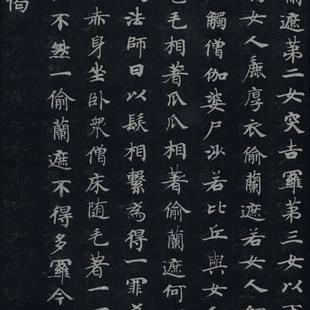 蘭遮第二女突吉羅第三女以下
女人麁厚衣偷蘭遮若女人
觸僧伽婆尸沙若比丘與女人
毛相著爪爪相著偷蘭遮何
法師曰以髮相繫為得一罪
赤身坐卧眾僧床随毛著一
不然一偷蘭遮不得多羅今
偈